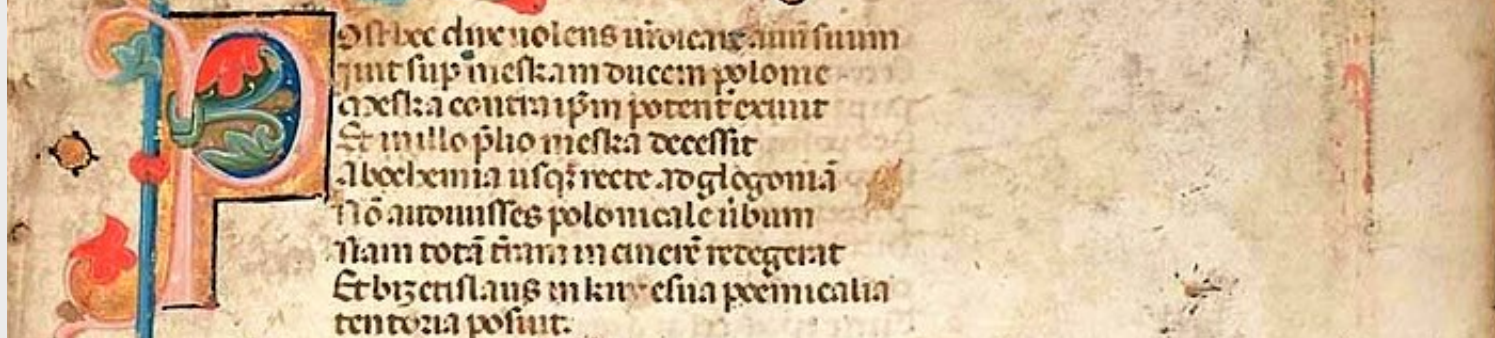 Post hec dux uolens auũ suum
Iuit sup̃ meskam ducem polonie
Meska contra ip̃m potent̃ exiuit
Et in illo p̃lio meska decessit
A boehemia usqꝫ recte ad glogoniã
Nõ audiuisses polonicale ũbum
Nam totã t̃ram in cinerẽ redegerat
Et bizetislaus in poemicalia
tentoria posuit.